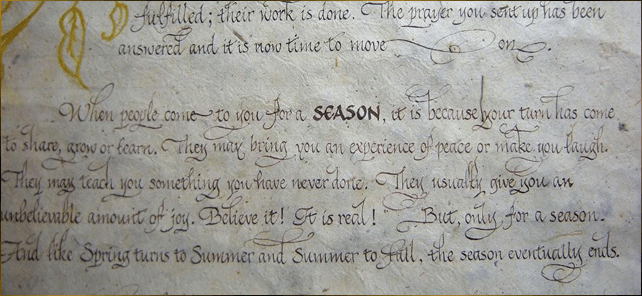 fulfilled; their work is done. The prayer you sent up has been
answered and it is now time to move on.
When people come to you for a SEASON, it is because your turn has come
to share, grow or learn. They may bring you an experience of peace or make you laugh.
They may teach you something you have never done. They usually give you an
unbelievable amount of joy. Believe it! It is real! But, only for a season.
And like Spring turns to Summer and Summer to Fall, the season eventually ends.